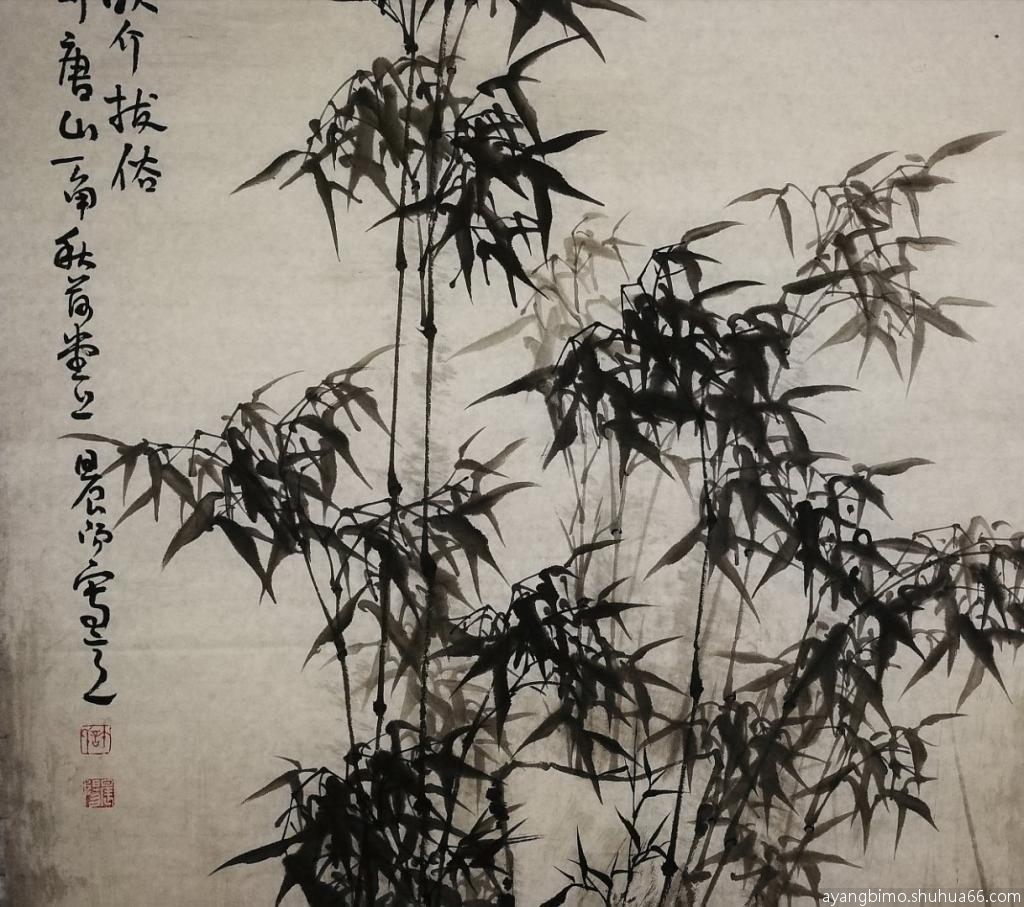 介拔俗
唐山一角秋荷堂上晨阳寫之
ayangbimo.shuhua66.com